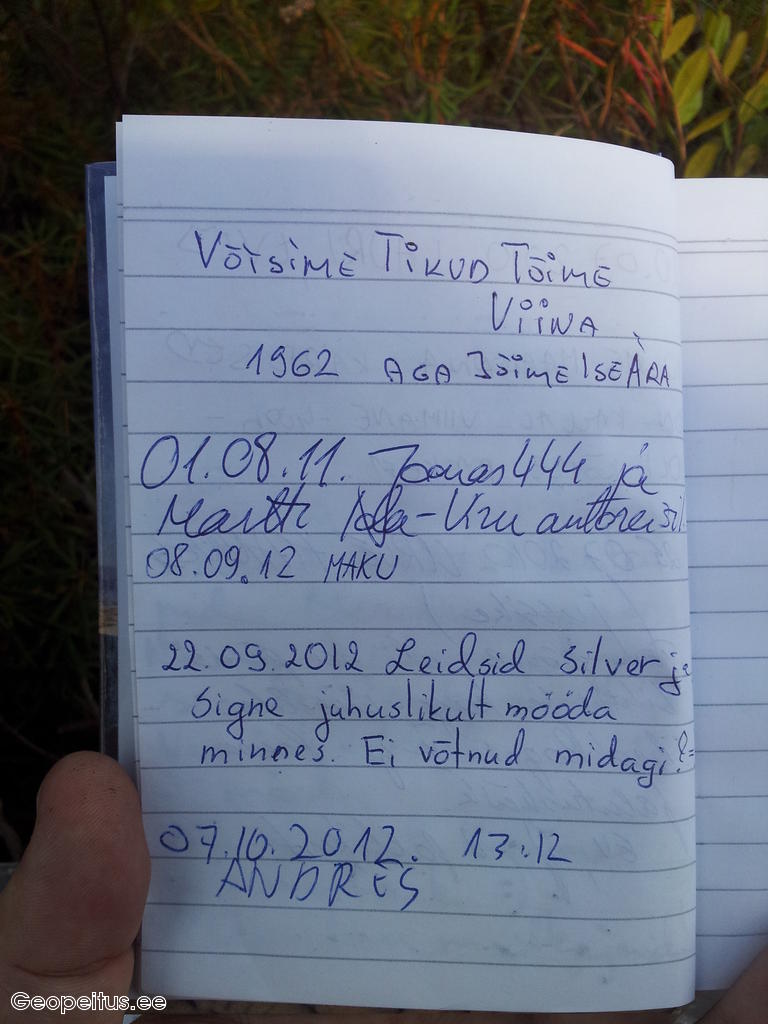 VÕTSIME TIKUD TÕIME
VIINA
1962 AGA JÕIME ISE ÄRA
01.08.11. Joonas444 ja
Martti
08.09.12 MAKU
22.09.2012 Leidsid Silver ja
Signe juhuslikult mööda
minnes. Ei võtnud midagi!
07.10.2012. 13:12
ANDRES
Geopeitus.ee